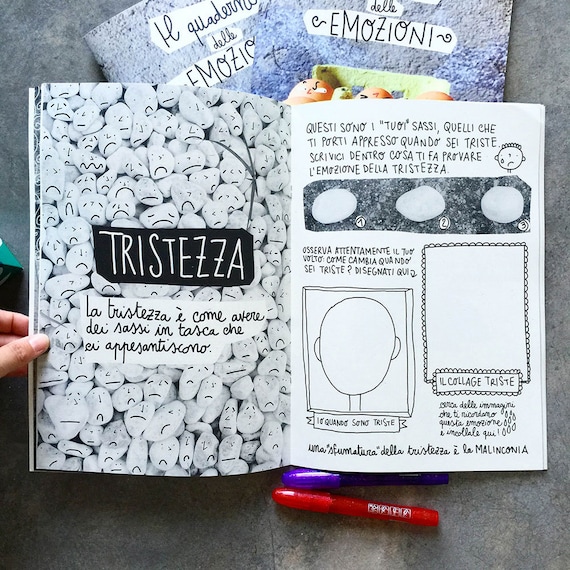 Il quaderno
delle
EMOZIO
delle
EMOZIONI
TRISTEZZA
La tristezza è come avere
dei sassi in tasca che
ci appesantiscono.
QUESTI SONO I "TUOI" SASSI, QUELLI CHE
TI PORTI APPRESSO QUANDO SEI TRISTE.
SCRIVICI DENTRO COSA TI FA PROVARE
L'EMOZIONE DELLA TRISTEZZA.
1 2 3
OSSERVA ATTENTAMENTE IL TUO
VOLTO: COME CAMBIA QUANDO
SEI TRISTE? DISEGNATI QUI
IO QUANDO SONO TRISTE
IL COLLAGE TRISTE
cerca delle immagini
che ti ricordano
questa emozione
e incollale qui!
una "sfumatura" della tristezza è la MALINCONIA